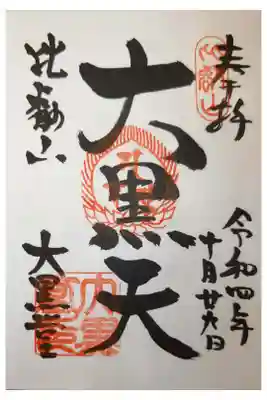 奉拝
令和四年
十月廿六日
大黒天
比叡山
大黒堂